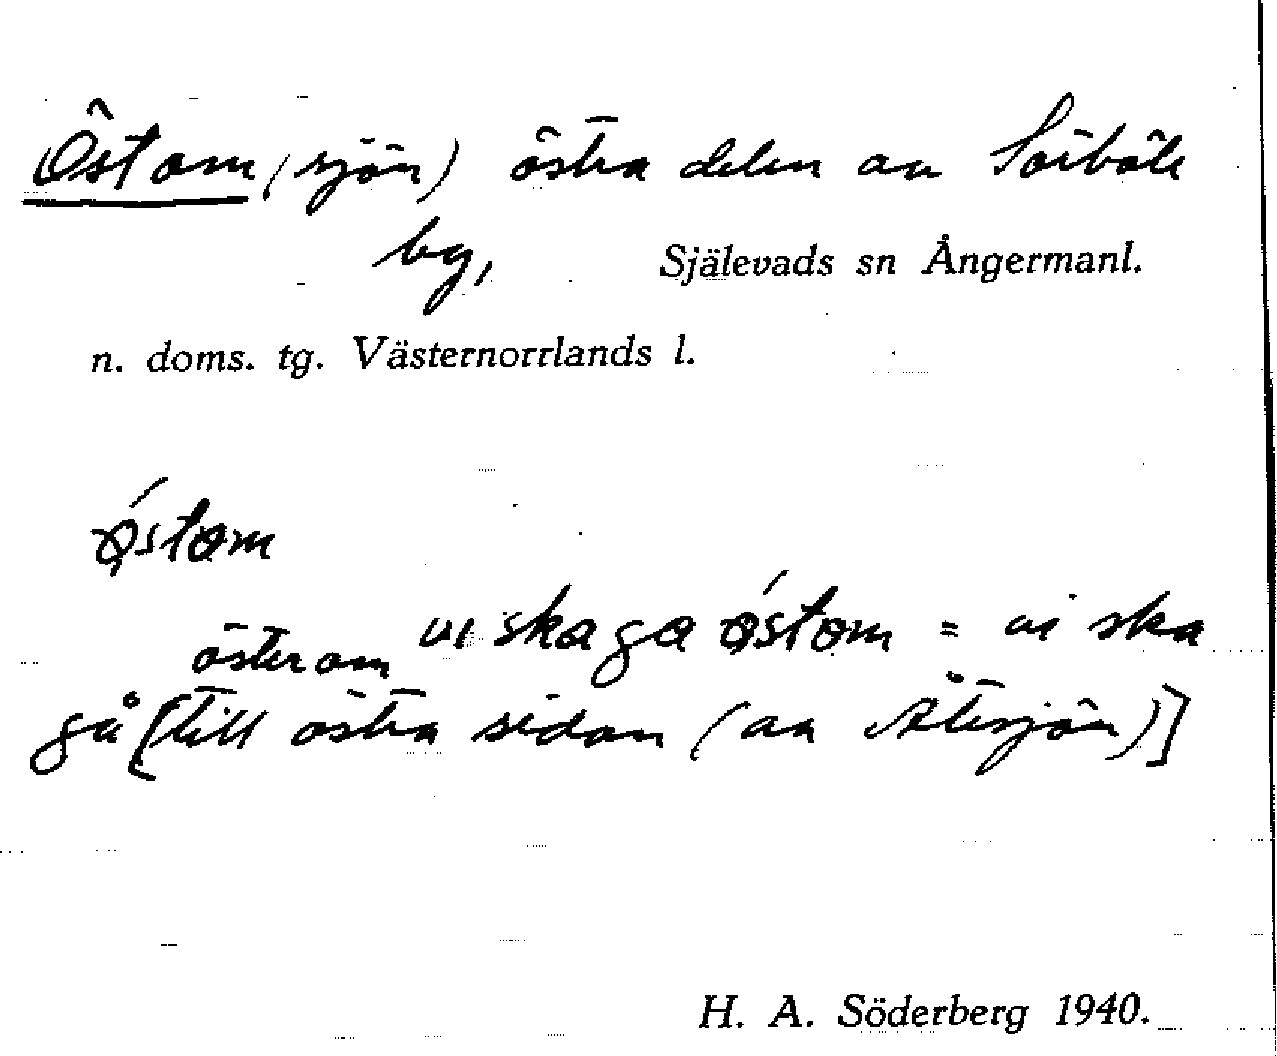 Östom (sjön) östra delen av Sörböle
by, Själevads sn Ångermanl.
n. doms. tg. Västernorrlands l.
óstom
österom vi ska ga óstom = vi ska
gå [till östra sidan (av Åtesjön)]
H. A. Söderberg 1940.